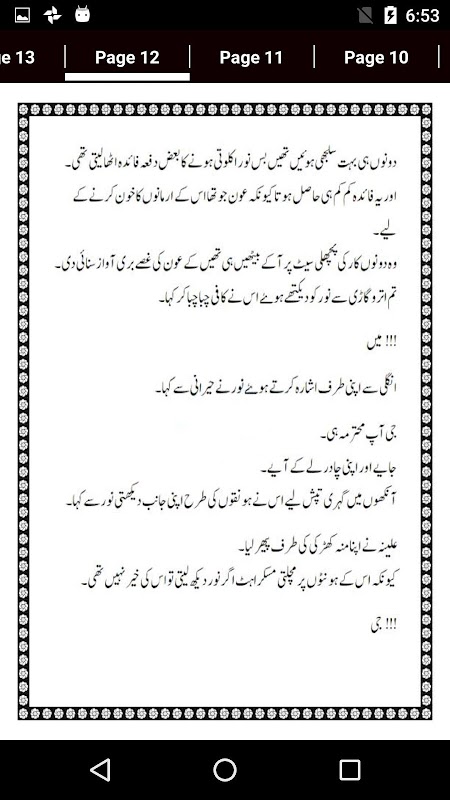 6:53
Page 13
Page 12
Page 11
Page 10
دونوں ہی بہت سلجھی ہوئیں تھیں بس نور اکلوتی ہونے کا بعض دفعہ فائدہ اٹھا لیتی تھی۔
اور یہ فائدہ کم کم ہی حاصل ہوتا کیونکہ عون جو تھا اس کے ارمانوں کا خون کرنے کے
لیے۔
وہ دونوں کار کی پچھلی سیٹ پر آ کے بیٹھیں ہی تھیں کے عون کی غصے بری آواز سنائی دی۔
تم اترو گاڑی سے نور کو دیکھتے ہوئے اس نے کافی چبا چبا کر کہا۔
!!! میں
انگلی سے اپنی طرف اشارہ کرتے ہوئے نور نے حیرانی سے کہا۔
جی آپ محترمہ ہی۔
جایے اور اپنی چادر لے کے آیے۔
آنکھوں میں گہری تپش لیے اس نے ہونقوں کی طرح اپنی جانب دیکھتی نور سے کہا۔
علینہ نے اپنا منہ کھڑکی کی طرف پھیر لیا۔
کیونکہ اس کے ہونٹوں پر مچلتی مسکراہٹ اگر نور دیکھ لیتی تو اس کی خیر نہیں تھی۔
!!! جی